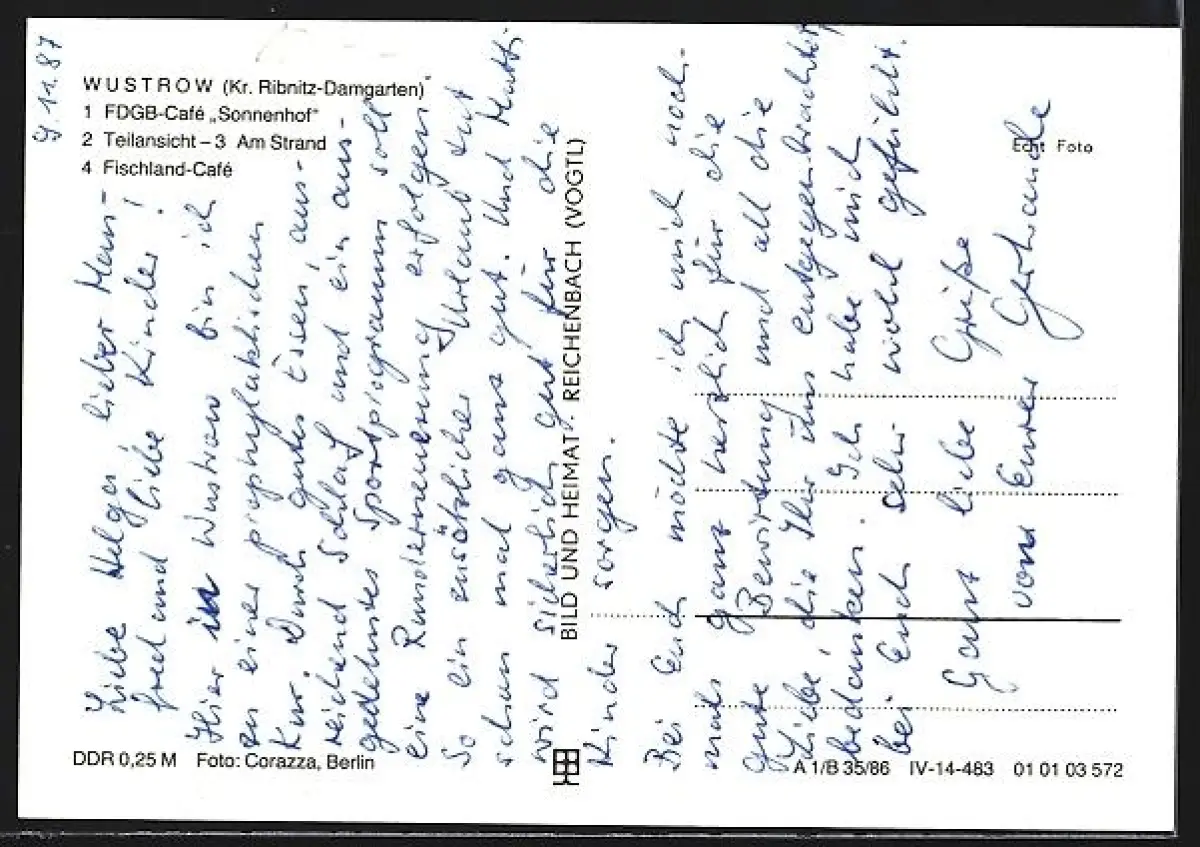 9.11.87
WUSTROW (Kr. Ribnitz-Damgarten)
1 FDGB-Café „Sonnenhof"
2 Teilansicht – 3 Am Strand
4 Fischland-Café
Echt Foto
Liebe Helga, lieber Man-
fred und liebe Kinder!
Hier in Wustrow bin ich
zu einer prophylaktischen
Kur. Durch gutes Essen, aus-
reichend Schlaf und ein aus-
gedehntes Sportprogramm soll
eine Runderneuerung erfolgen.
So ein zusätzlicher Urlaub tut
schon mal ganz gut. Und Mutti
wird sicherlich gut für die
Kinder sorgen.
Bei Euch möchte ich mich noch-
mals ganz herzlich für die
gute Bewirtung und all die
Liebe, die Ihr uns entgegenbrachtet,
bedanken. Ich habe mich
bei Euch sehr wohl gefühlt.
Ganz liebe Grüße
von Eurer Gertraude
BILD UND HEIMAT · REICHENBACH (VOGTL)
DDR 0,25 M Foto: Corazza, Berlin
A 1/B 35/86 IV-14-483 01 01 03 572